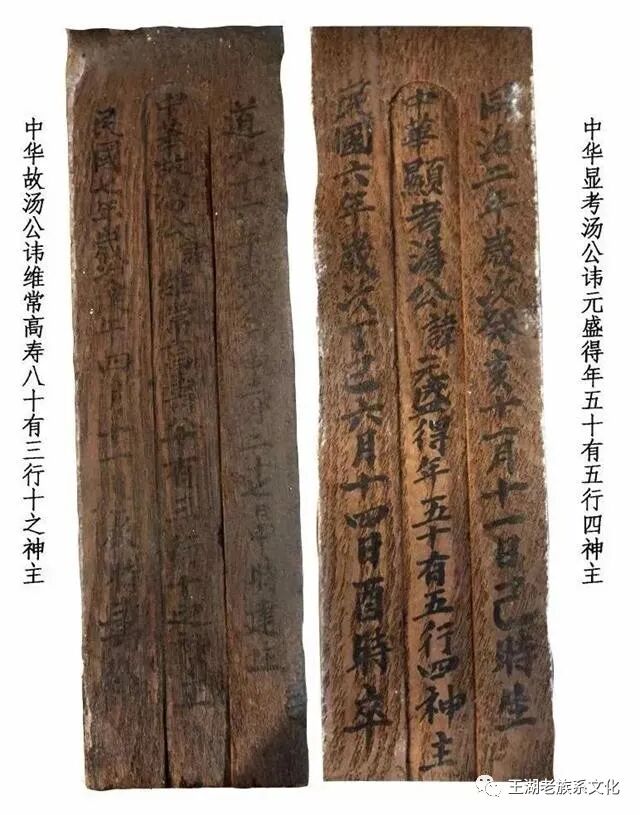 中华显考汤公讳元盛得年五十有五行四神主
同治二年歲次癸亥十一月十一日己時生
中華顯考湯公諱元盛得年五十有五行四神主
民國六年歲次丁己六月十四日酉時卒
道光年歲次二十日申時建生
中華故湯公諱維常高壽八十有三行十之神主
民國七年歲次午四月十一時
中华故汤公讳维常高寿八十有三行十之神主
王湖老族系文化